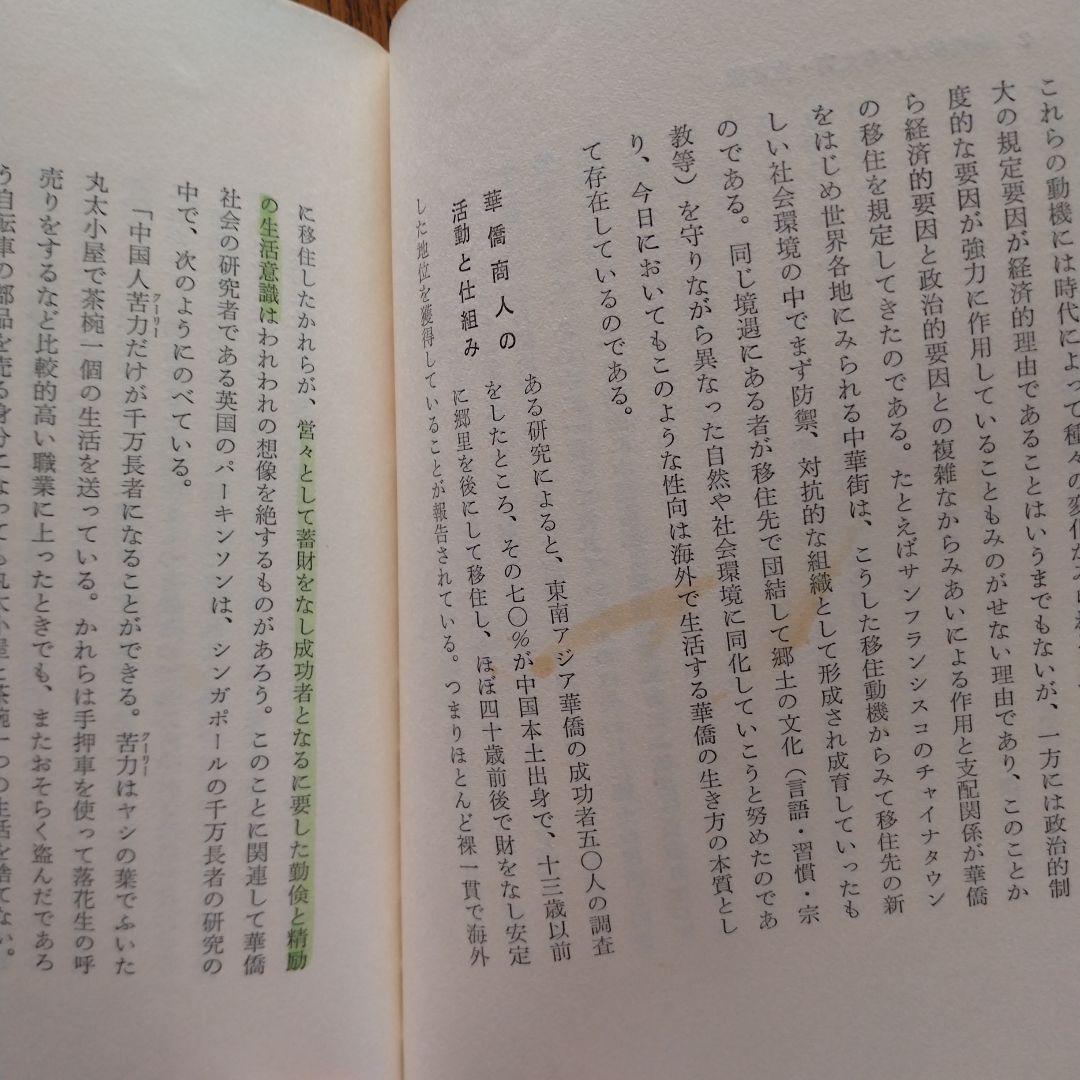 これらの動機には時代によって種々の変化が
大の規定要因が経済的理由であることはいうまでもないが、一方には政治的制
度的な要因が強力に作用していることもみのがせない理由であり、このことか
ら経済的要因と政治的要因との複雑なからみあいによる作用と支配関係が華僑
の移住を規定してきたのである。たとえばサンフランシスコのチャイナタウン
をはじめ世界各地にみられる中華街は、こうした移住動機からみて移住先の新
しい社会環境の中でまず防禦、対抗的な組織として形成され成育していったも
のである。同じ境遇にある者が移住先で団結して郷土の文化(言語・習慣・宗
教等)を守りながら異なった自然や社会環境に同化していこうと努めたのであ
り、今日においてもこのような性向は海外で生活する華僑の生き方の本質とし
て存在しているのである。
華僑商人の
活動と仕組み
ある研究によると、東南アジア華僑の成功者五〇人の調査
をしたところ、その七〇%が中国本土出身で、十三歳以前
に郷里を後にして移住し、ほぼ四十歳前後で財をなし安定
した地位を獲得していることが報告されている。つまりほとんど裸一貫で海外
に移住したかれらが、営々として蓄財をなし成功者となるに要した勤倹と精励
の生活意識はわれわれの想像を絶するものがあろう。このことに関連して華僑
社会の研究者である英国のパーキンソンは、シンガポールの千万長者の研究の
中で、次のようにのべている。
「中国人苦力クーリーだけが千万長者になることができる。苦力クーリーはヤシの葉でふいた
丸太小屋で茶椀一個の生活を送っている。かれらは手押車を使って落花生の呼
売りをするなど比較的高い職業に上ったときでも、またおそらく盗んだであろ
う自転車の部品を売る身分になっても丸太小屋と茶椀一つの生活を捨てない。